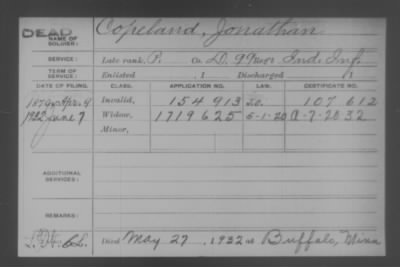 DEAD
NAME OF SOLDIER:
Copeland, Jonathan
SERVICE: Late rank, P. Co. D, 99 Regt Ind. Inf.
TERM OF SERVICE: Enlisted , 1 Discharged , 1
DATE OF FILING. CLASS. APPLICATION NO. LAW. CERTIFICATE NO.
Apr. 9 Invalid, 154 913 107 612
1932 June 7 Widow, 1719625 5-1-20 A-7-20 32
Minor,
ADDITIONAL SERVICES:
REMARKS:
Died May 27, 1932 at Buffalo, Minn